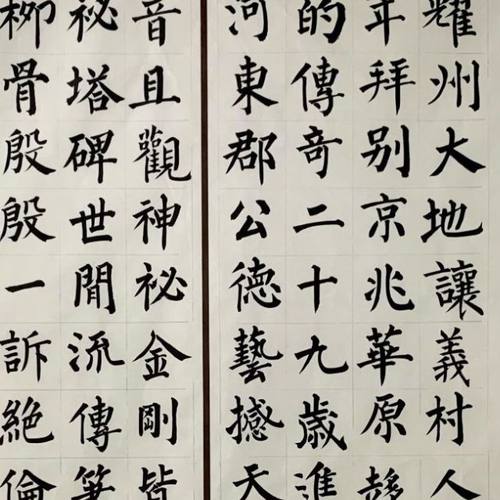 耀州大地讓義村人
年拜别京兆華原
的傳奇二十九歲進
河東郡公德藝撼天
音且觀神祕金剛皆
祕塔碑世間流傳筆
柳骨殷殷一訴絕倫